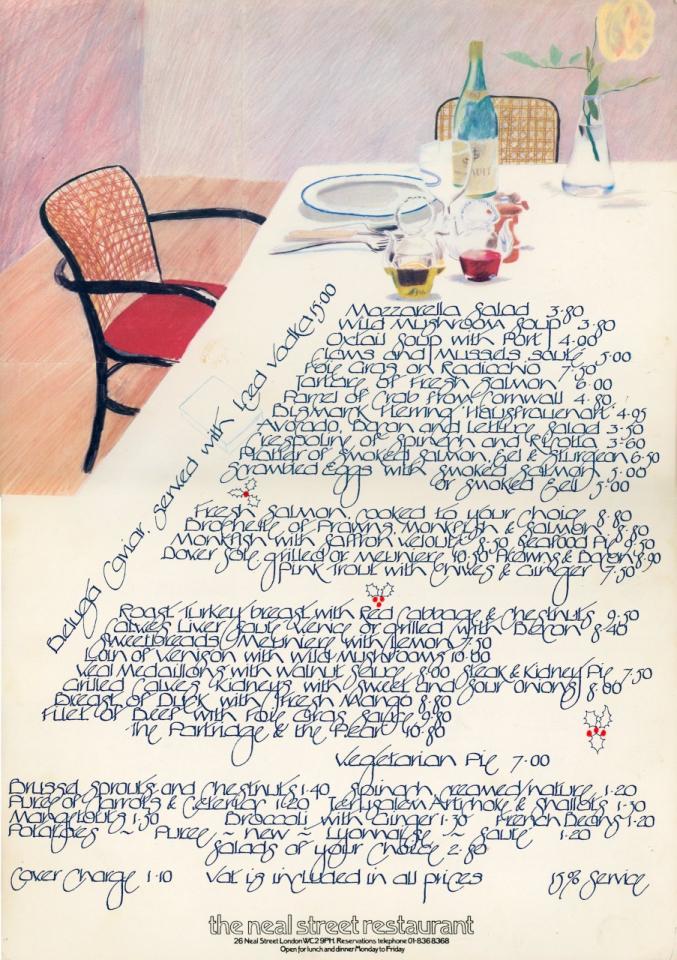 Beluga Caviar, served with Iced Vodka 15.00
Mozzarella Salad 3.80
Wild Mushroom Soup 3.80
Oxtail Soup with Port 4.00
Clams and Mussels sauté 5.00
Foie Gras on Radicchio 7.50
Tartare of Fresh Salmon 6.00
Parcel of Crab from Cornwall 4.80
Bismark Herring 'Hausfrauenart' 4.95
Avocado, Bacon and Lettuce Salad 3.50
Crespoline of Spinach and Ricotta 3.60
Platter of Smoked Salmon, Eel & Sturgeon 6.50
Scrambled Eggs with Smoked Salmon 5.00
or Smoked Eel 5.00
Fresh Salmon, cooked to your choice 8.80
Brochette of Prawns, Monkfish & Salmon 8.80
Monkfish with Saffron Velouté 8.50 Seafood Pie 8.50
Dover Sole grilled or Meuniere 10.50 Prawns & Bacon 8.90
Pink Trout with Chives & Ginger 7.50
Roast Turkey breast with Red Cabbage & Chestnuts 9.50
Calves Liver, sauté Venice or grilled with Bacon 8.40
Sweetbreads Meuniere with Lemon 7.50
Loin of Venison with Wild Mushrooms 10.00
Veal Medaillons with Walnut Sauce 8.00 Steak & Kidney Pie 7.50
Grilled Calves Kidneys with Sweet and Sour Onions 8.00
Breast of Duck with Fresh Mango 8.80
Fillet of Beef with Foie Gras Sauce 9.80
The Partridge & the Pear 10.80
Vegetarian Pie 7.00
Brussel Sprouts and Chestnuts 1.40 Spinach, creamed/nature 1.20
Puree of Carrots & Celeriac 1.20 Jerusalem Artichoke & Shallots 1.50
Mangetouts 1.50 Broccoli with Ginger 1.30 French Beans 1.20
Potatoes ~ Puree ~ new ~ Lyonnaise ~ Sauté 1.20
Salads of your Choice 2.80
Cover Charge 1.10 Vat is included in all prices 15% Service
the neal street restaurant
26 Neal Street London WC2 9PH. Reservations telephone 01-836 8368
Open for lunch and dinner Monday to Friday